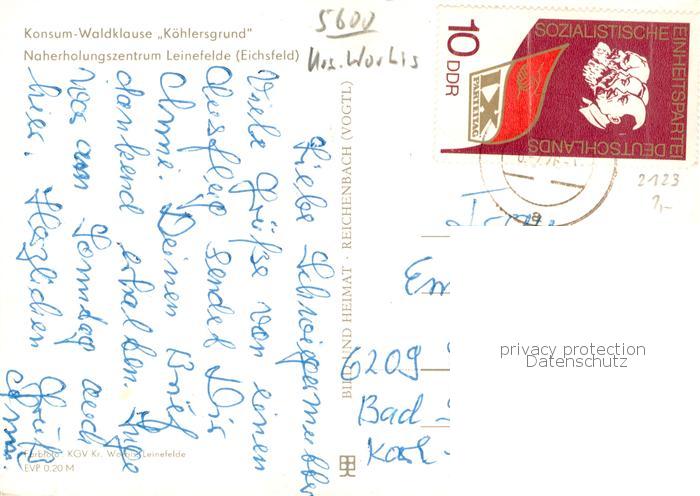 Konsum-Waldklause „Köhlersgrund"
Naherholungszentrum Leinefelde (Eichsfeld)
5600
Krs. Worbis
10
DDR
SOZIALISTISCHE
EINHEITSPARTEI
DEUTSCHLANDS
IX
PARTEITAG
2123
1,-
Liebe Schwiegermutter
Viele Grüße von einen
Ausflug sendet Dir
Deinen Brief
dankend erhalten.
War am Sonntag auch
hier. Herzlichen Gruß
BILD UND HEIMAT · REICHENBACH (VOGTL)
6209
Bad
Farbfoto: KGV Kr. Worbis/Leinefelde
EVP 0,20 M
privacy protection
Datenschutz